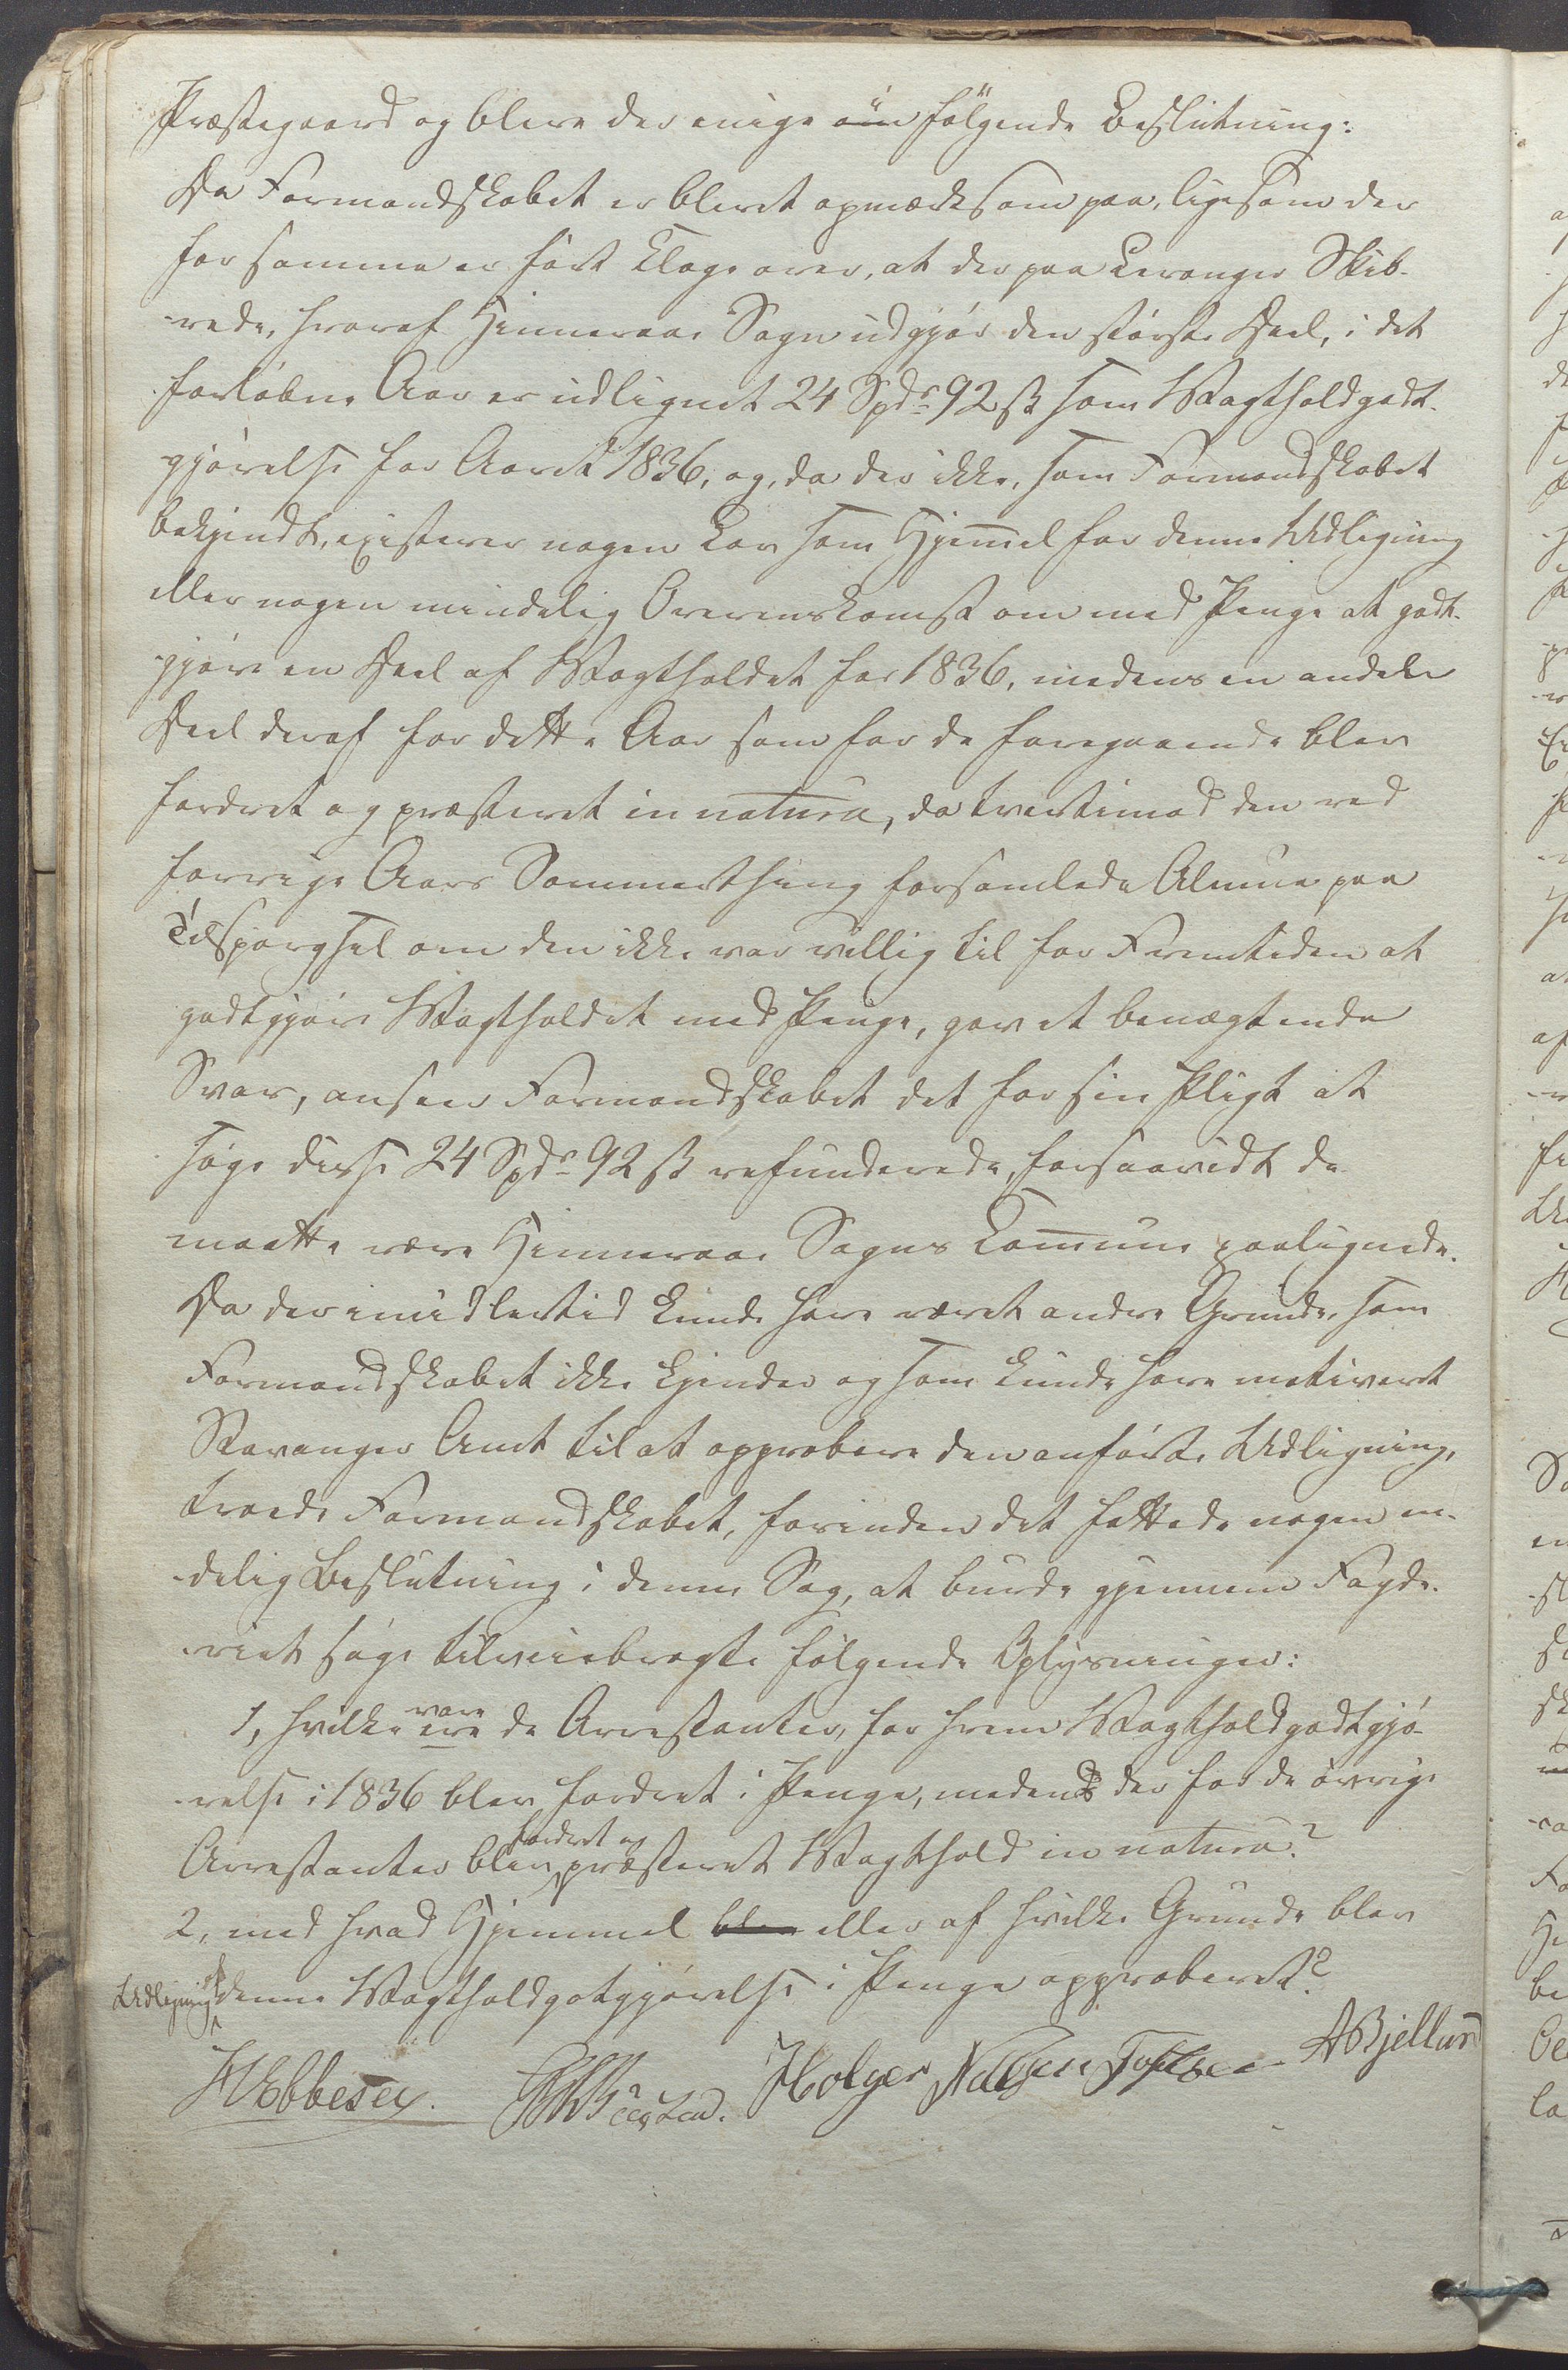 Præstegaard og bleve der enige om i følgende Beslutning:
Da Formandskabet er blevet opmærksom paa, ligesom der
for samme er ført Klage over, at der paa Leranger Skib-
rede, hvoraf Hinneraae Sogn udgjør den største Deel, i det
forløbne Aar er udlignet 24 Spdr 92 ß som Vagtholdgodt-
gjørelse for Aaret 1836, og, da der ikke, som Formandskabet
bekjendt, existerer nogen Lov som Hjemel for denne Udligning
eller nogen mindelig Overenskomst om med Penge at godt-
gjøre en Deel af Vagtholdet for 1836, medens en anden
Deel deraf for dette Aar som for de foregaaende blev
fordret og præsteret in natura, da tvertimod den ved
forrige Aars Sommerthing forsamlede Almue paa
Tilspørgsel om den ikke var villig til for Fremtiden at
godtgjøre Vagtholdet med Penge, gav et benægtende
Svar, ansaae Formandskabet det for sin Pligt at
søge disse 24 Spdr 92 ß refunderede, forsaavidt de
maatte være Hinneraae Sogns Comune paalignede.
Da der imidlertid kunde have været andre Grunde, som
Formandskabet ikke kjender og som kunde have motiveret
Stavanger Amt til at approbere den anførte Udligning,
troede Formandskabet, forinden det fattede nogen en-
delig Beslutning i denne Sag, at burde gjennem Fogde-
riet søge tilveiebragte følgende Oplysninger:
1, hvilke vare ere de Arrestanter, for hvem Vagtholdgodtgjø-
relse i 1836 blev fordret i Penge, medens der for de øvrige
Arrestanter blev fordret og præsteret Vagthold in natura?
2, med hvad Hjemmel blev eller af hvilke Grunde blev
Udligning af denne Vagtholdgotgjørelse i Penge approberet?
Ebbesen. Holger Nielsen Toftsen ABjelland